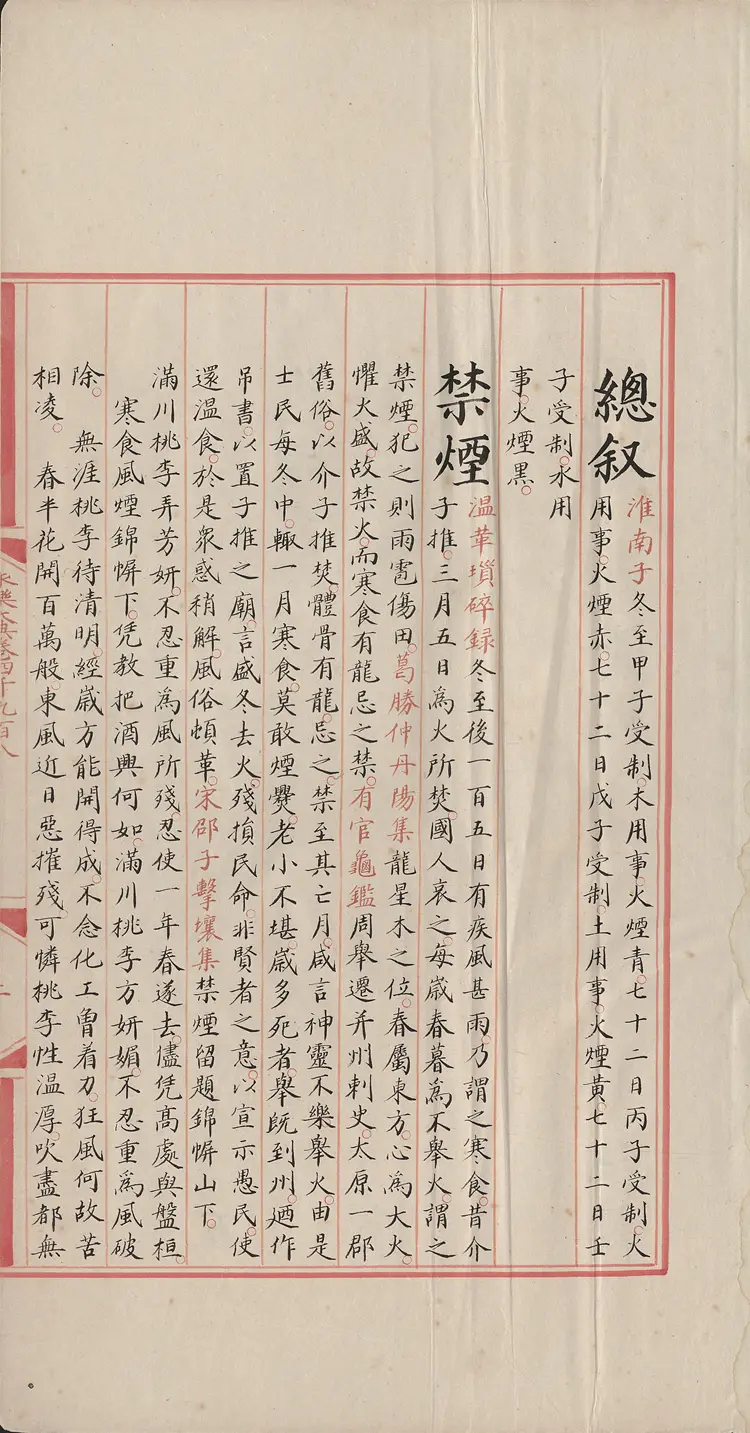 總叙
淮南子冬至甲子受制。木用事。火煙青。七十二日丙子受制。火
用事。火煙赤。七十二日戊子受制。土用事。火煙黃。七十二日壬
子受制。水用
事。火煙黑。
禁煙
温革瑣碎録冬至後一百五日有疾風甚雨。乃謂之寒食。昔介
子推。三月五日為火所焚。國人哀之。每歲春暮為不舉火。謂之
禁煙。犯之則雨雹傷田。葛勝仲丹陽集龍星木之位。春屬東方。心為大火。
懼火盛。故禁火。而寒食有龍忌之禁。有官龜鑑周舉遷并州刺史。太原一郡
舊俗。以介子推焚體。骨有龍忌之禁。至其亡月。咸言神靈不樂舉火。由是
士民每冬中。輙一月寒食。莫敢煙爨。老小不堪。歲多死者。舉既到州。廼作
吊書。以置子推之廟。言盛冬去火。殘損民命。非賢者之意。以宣示愚民。使
還溫食。於是衆惑稍解。風俗頓革。宋邵子擊壤集禁煙留題錦幈山下。
滿川桃李弄芳妍。不忍重為風所殘。忍使一年春遂去。儘凭高處與盤桓。
寒食風煙錦幈下。凭教把酒興何如。滿川桃李方妍媚。不忍重為風破
除。 無涯桃李待清明。經歲方能開得成。不念化工曾着力。狂風何故苦
相凌。 春半花開百萬般。東風近日惡摧殘。可憐桃李性溫厚。吹盡都無
永樂大典卷四千九百八